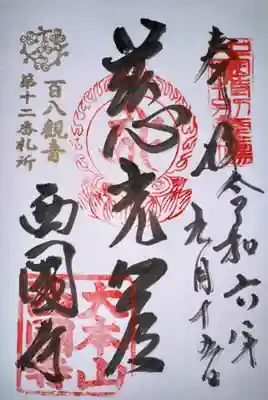 奉拝
令和六年九月十五日
慈心光
百八観音
第十二番札所
西國寺
大本山
西國寺